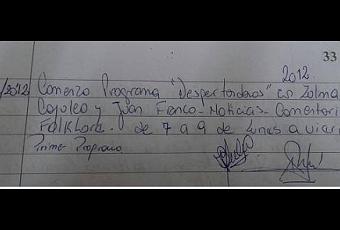 33
2012.
/2012 Comenzo Programa "Despertandonos" con Zulma
Copuleo y Juan Franco - Noticias - Comentari
Folklore. de 7 a 9 de Lunes a vier
Primer Programa